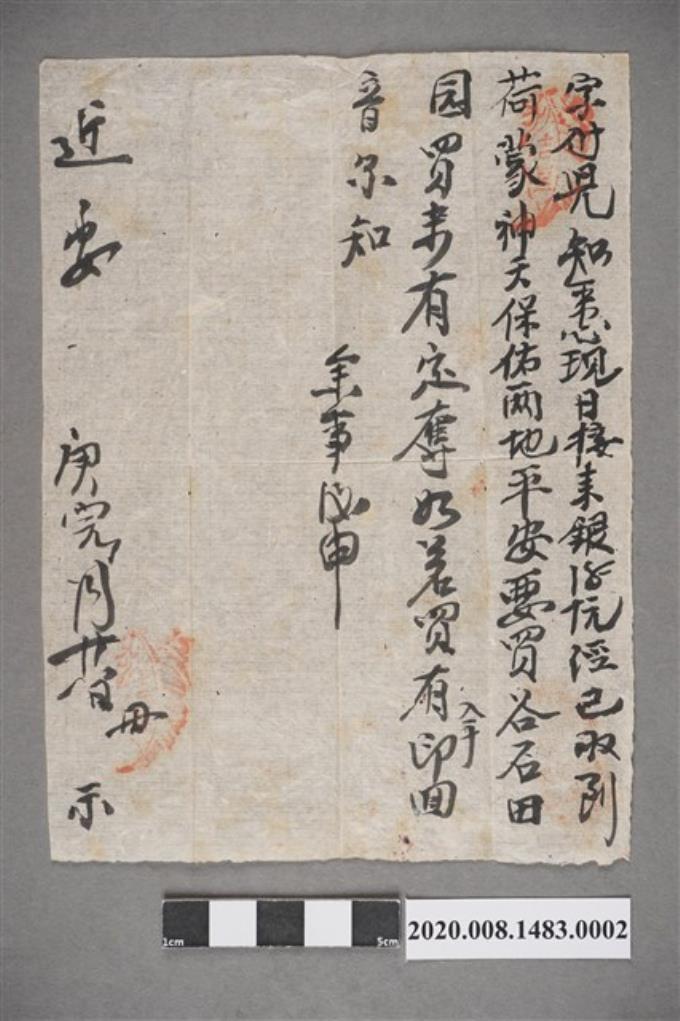 字付兒 知悉現日接来銀經已收到
荷蒙神天保佑兩地平安要買谷石田
园買未有定奪如若買有入手印回
音尔知
余事後申
近安
庚月母 示
2020.008.1483.0002
1cm 5cm